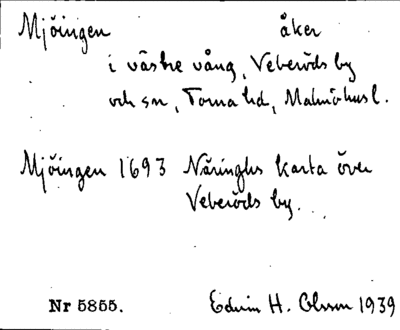 Mjöingen åker
i västre vång, Veberöds by
och sn, Torna hd, Malmöhus l.
Mjöingen 1693 Näringhs karta över
Veberöds by.
Nr 5855. Edvin H. Olsson 1939